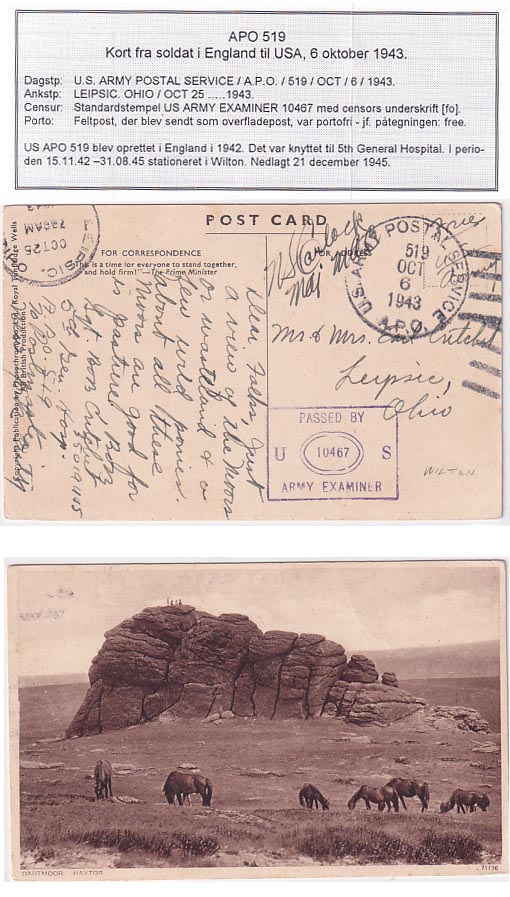 APO 519
Kort fra soldat i England til USA, 6 oktober 1943.
Dagstp: U.S. ARMY POSTAL SERVICE / A.P.O. / 519 / OCT / 6 / 1943.
Ankstp: LEIPSIC. OHIO / OCT 25 .....1943.
Censur: Standardstempel US ARMY EXAMINER 10467 med censors underskrift [fo].
Porto: Feltpost, der blev sendt som overfladepost, var portofri - jf. påtegningen: free.
US APO 519 blev oprettet i England i 1942. Det var knyttet til 5th General Hospital. I perio-
den 15.11.42 –31.08.45 stationeret i Wilton. Nedlagt 21 december 1945.
POST CARD
FOR CORRESPONDENCE
"This is a time for everyone to stand together,
and hold firm!"—The Prime Minister
FOR ADDRESS
LEIPSIC, O
OCT 25
730 AM
1943
U.S. ARMY POSTAL SERVICE
519
OCT
6
1943
A.P.O.
Maj
Mr & Mrs.
Leipsic,
Ohio
PASSED BY
U 10467 S
ARMY EXAMINER
WILTON
Dear Folks, Just
a view of the moors
or wasteland & a
few wild ponies.
About all these
moors are good for
is pasture.
Bob
5th Gen. Hosp.
A.P.O. 519
DARTMOOR. HAYTOR
71136